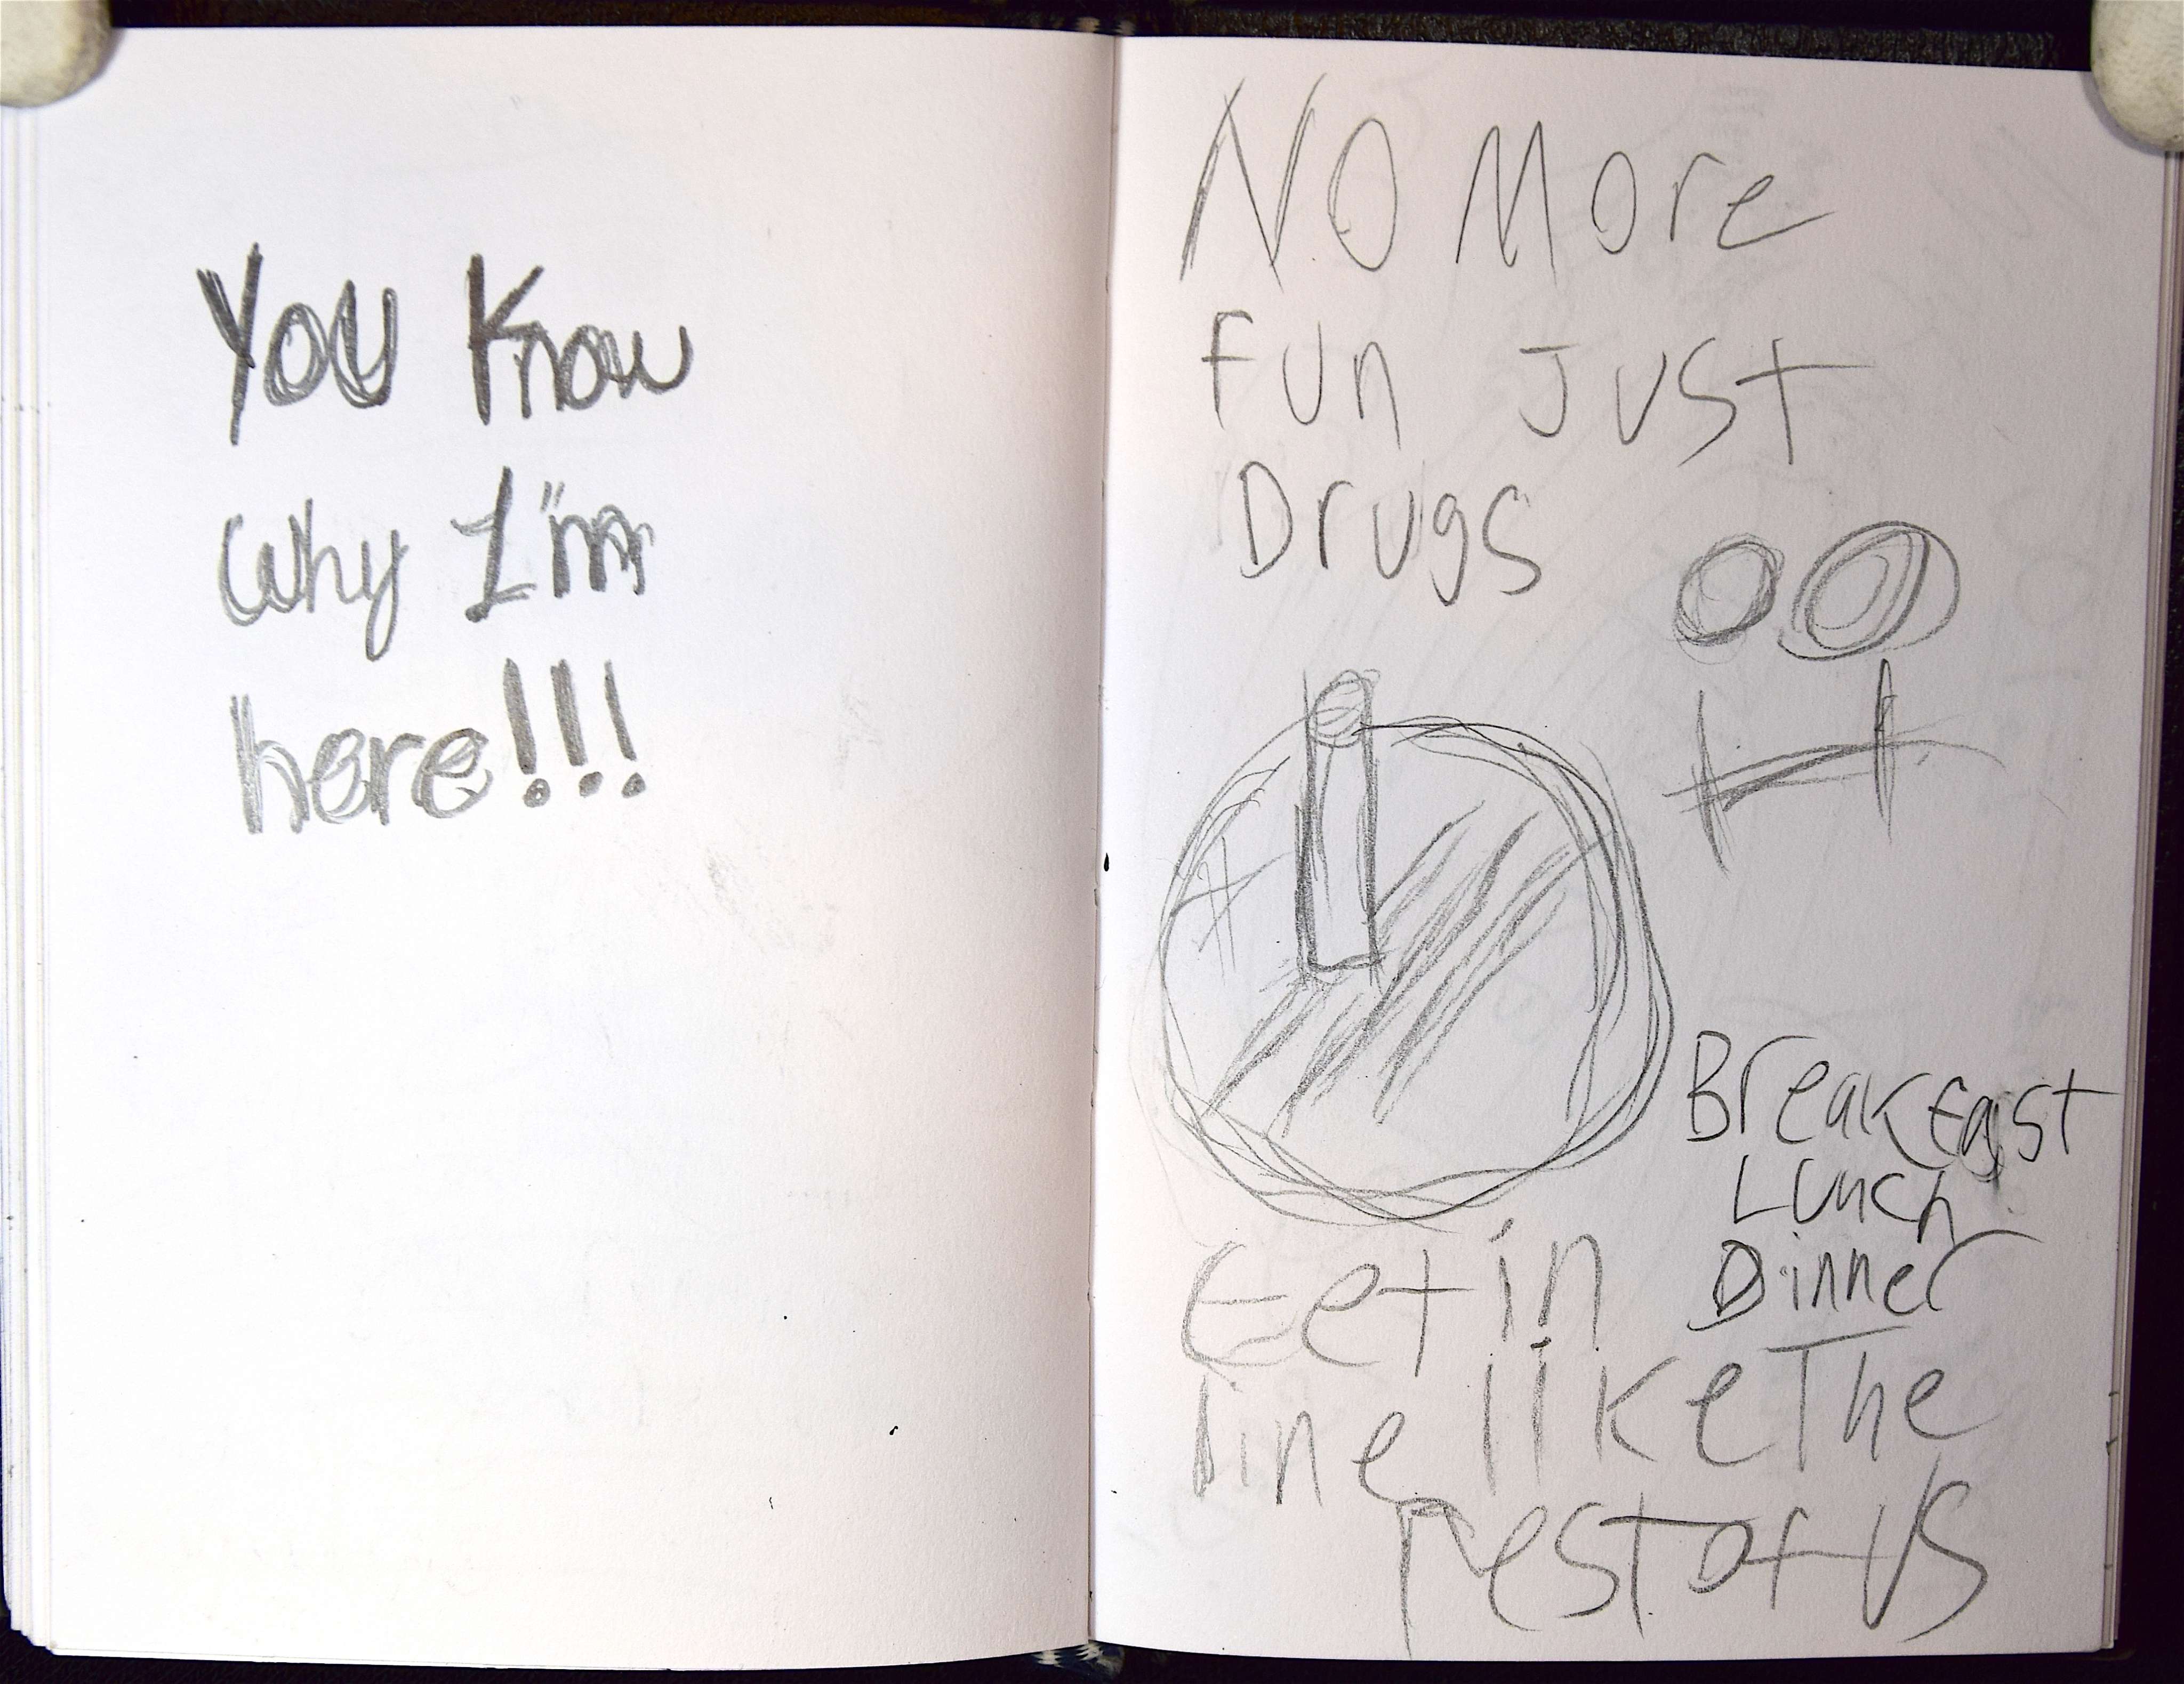 You Know
why I'm
here!!!
NO More
Fun Just
Drugs
BreakFast
Lunch
Dinner
Get in
line like The
rest of US